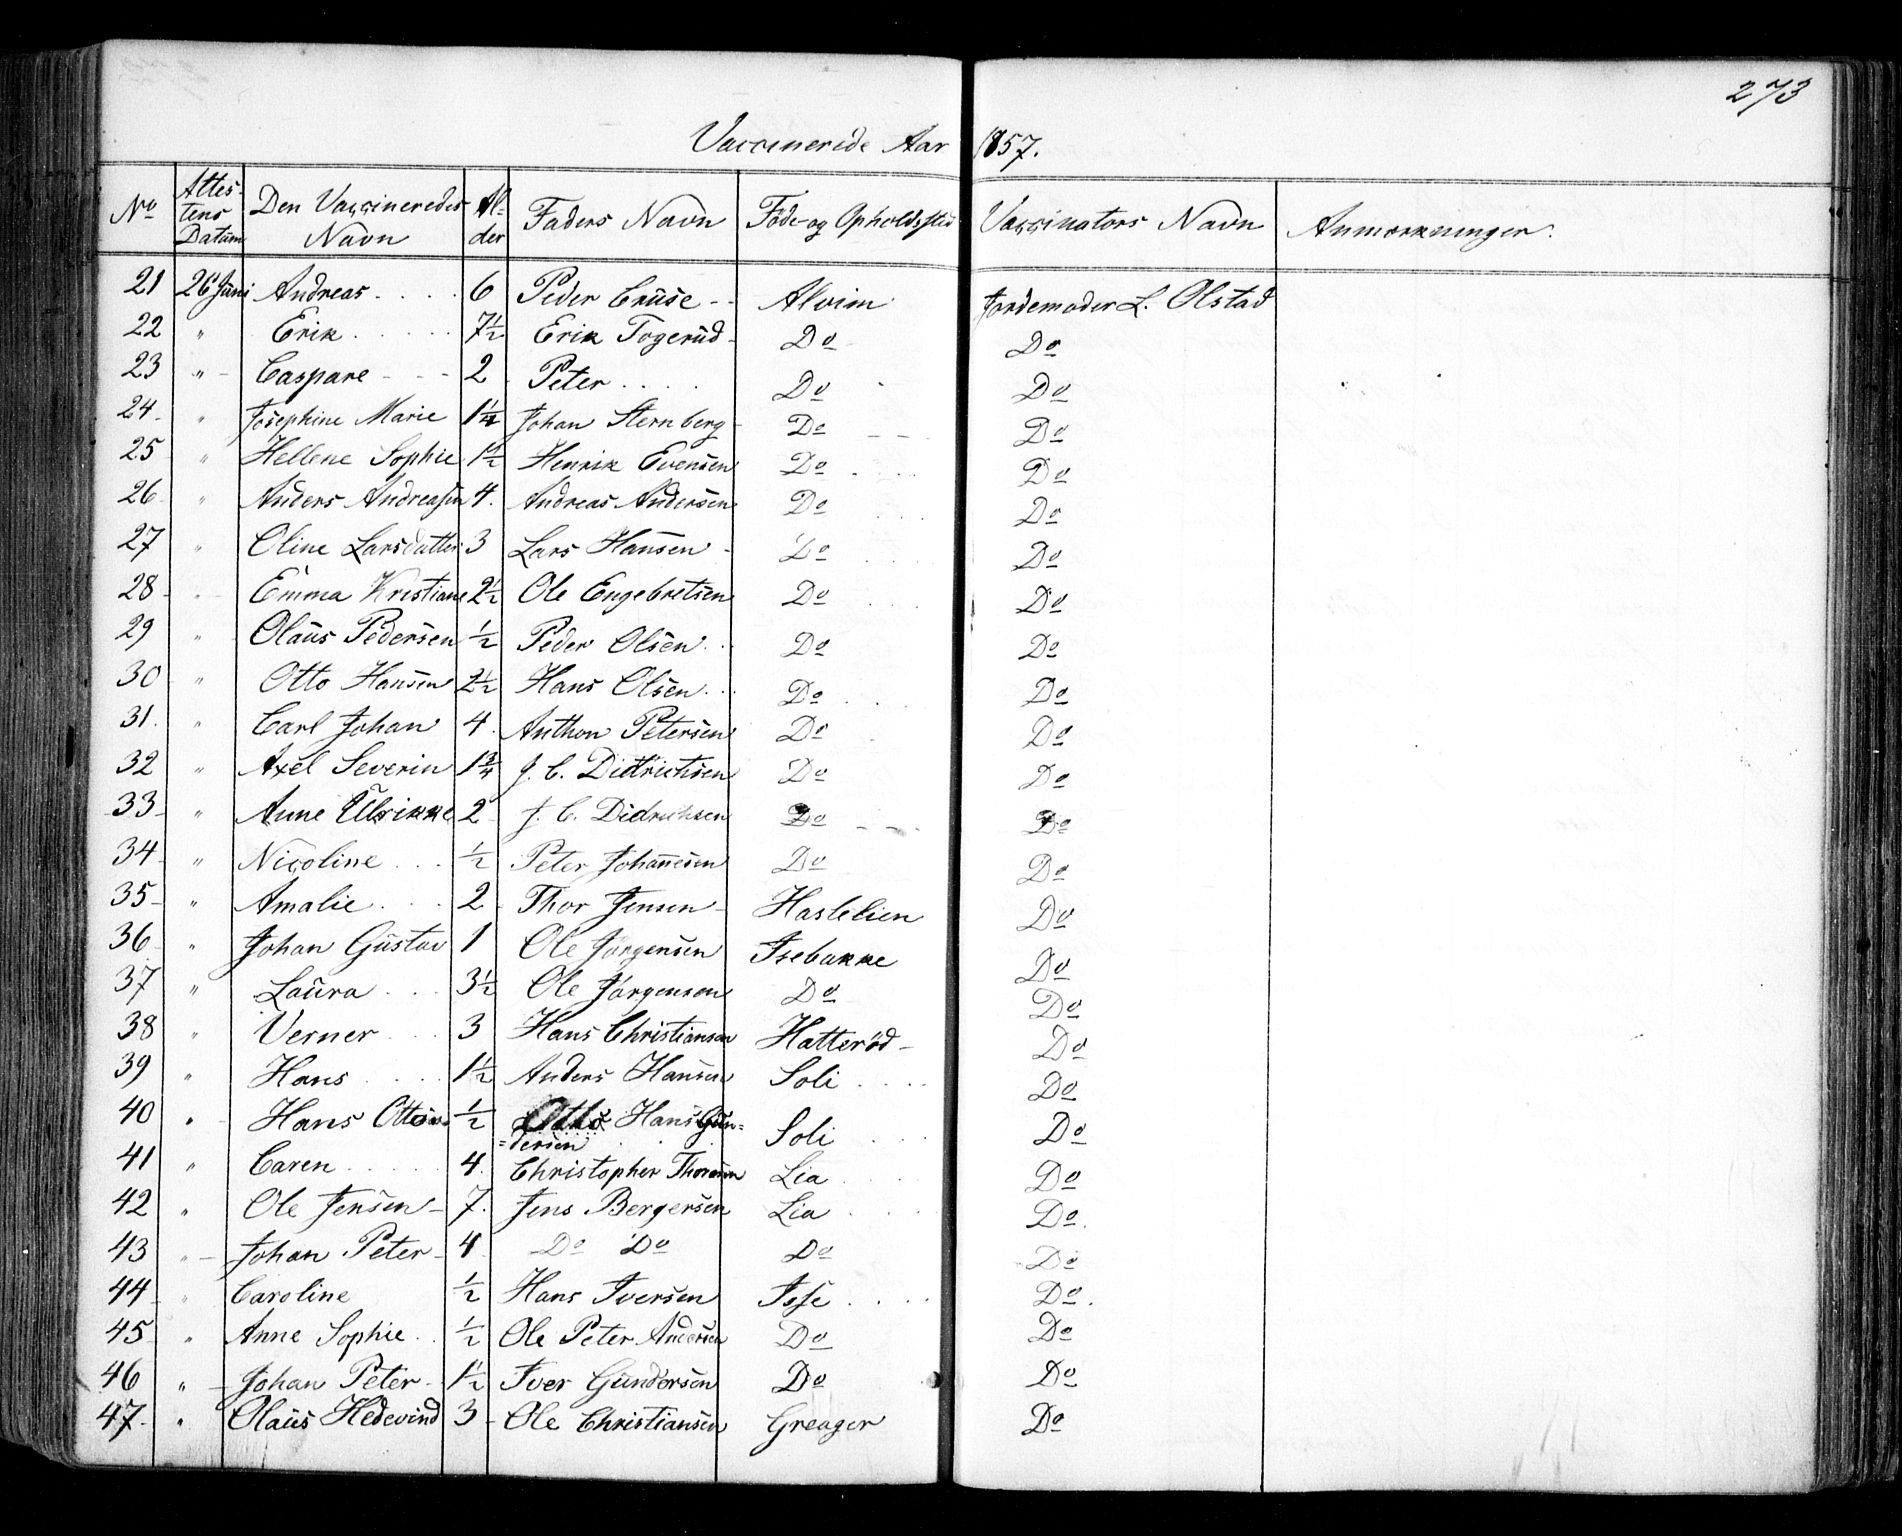 273
Vaccinerede Aar 1857.
No | Attestens Datum | Den Vaccineredes Navn | Alder | Faders Navn | Føde- og Opholdssted | Vaccinators Navn | Anmærkninger.
21 26 Juni Andreas 6 Peder Cruse Alvim Jordemoder L. Olstad
22 " Erik 7½ Erik Togerud Do Do
23 " Caspare 2 Peter Do Do
24 " Josephine Marie 1¼ Johan Sternberg Do Do
25 " Hellene Sophie 1½ Henrik Evensen Do Do
26 " Anders Andreasen 4 Andreas Andersen Do Do
27 " Oline Larsdatter 3 Lars Hansen Do Do
28 " Emma Kristiane 2½ Ole Engebretsen Do Do
29 " Olaus Pedersen ½ Peder Olsen Do Do
30 " Otto Hansen 2½ Hans Olsen Do Do
31. " Carl Johan 4 Anthon Petersen Do Do
32 " Axel Severin 1¾ J. C. Diedrichsen Do Do
33 " Anne Ulrikke 2 J. C. Didrichsen Do Do
34 " Nicoline ½ Peter Johannesen Do Do
35 " Amalie 2 Thor Jensen Haslelien Do
36 " Johan Gustav 1 Ole Jørgensen Isebakke Do
37 " Laura 3½ Ole Jørgensen Do Do
38 " Verner 3 Hans Christiansen Hatterød Do
39 " Hans 1½ Anders Hansen Soli Do
40 " Hans Otto ½ Otto Hans Gun=
=dersen Soli Do
41 " Caren 4 Christopher Thoresen Lia Do
42 " Ole Jensen 7. Jens Bergersen Lia Do.
43 " Johan Peter 4 Do Do Do Do
44 " Caroline ½ Hans Iversen Isse Do.
45 " Anne Sophie ½ Ole Peter Andersen Do Do
46 " Johan Peter 1½ Iver Gundersen Do Do
47. " Olaus Hedevind 3 Ole Christiansen Greager Do